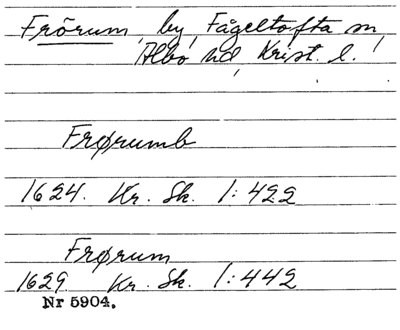 Frörum, by, Fågeltofta sn,
Albo hd, Krist. l.
Frørumb
1624. Kr. Sk. 1:422
Frørum
1629 Kr. Sk. 1:442
Nr 5904.